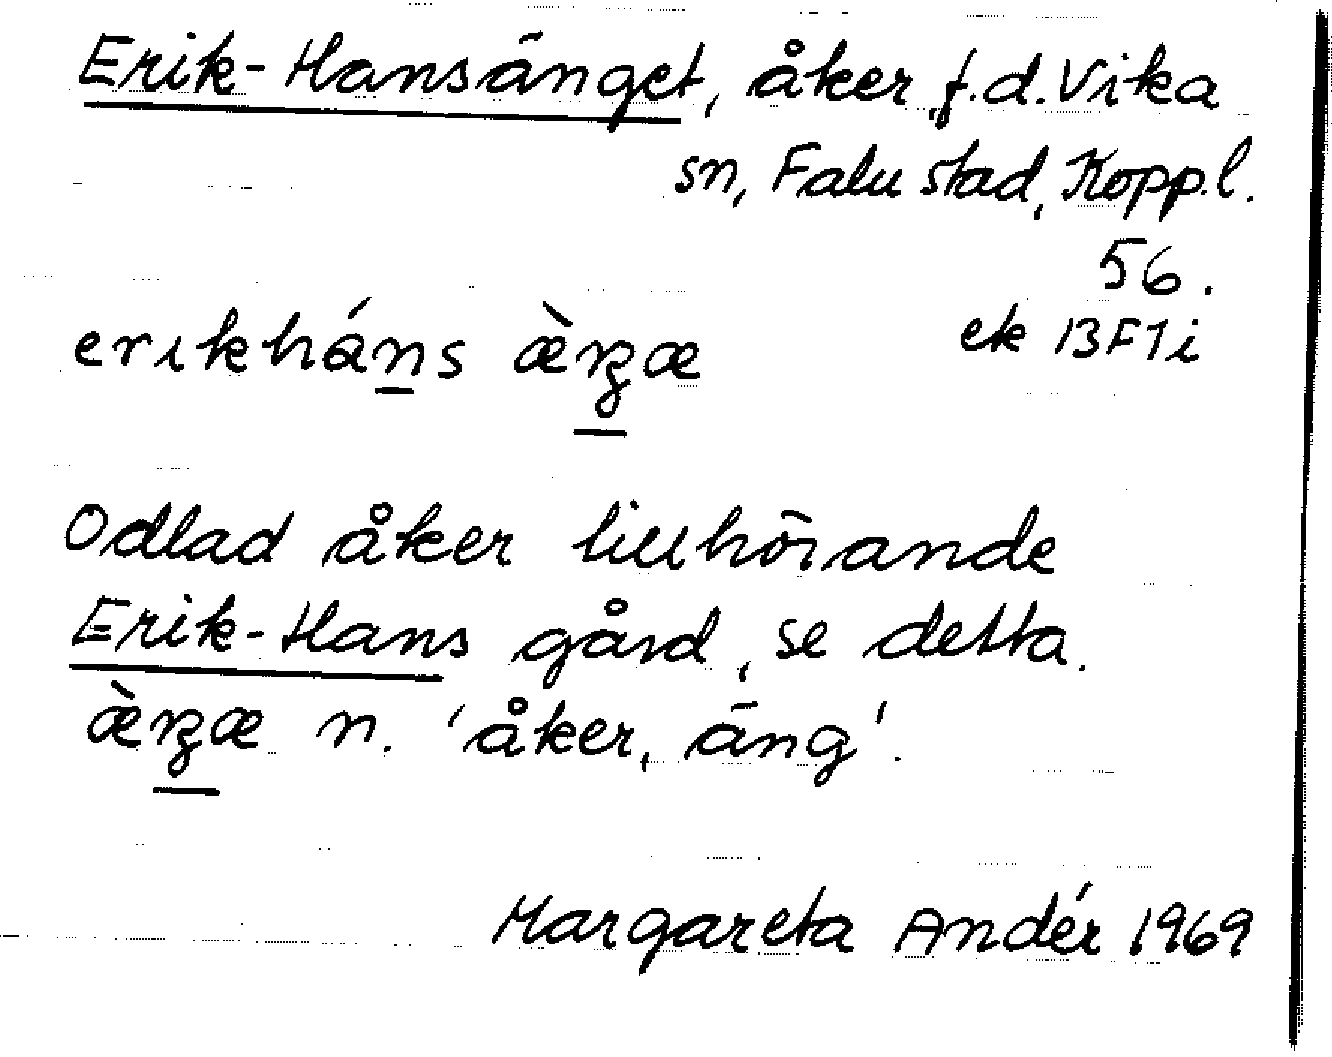 Erik-Hansänget, åker, f.d. Vika
sn, Falu stad, Koppl.
56.
ek 13F7i
erikháns æ̀ŋæ
Odlad åker tillhörande
Erik-Hans gård, se detta.
æ̀ŋæ n. 'åker, äng'.
Margareta Andér 1969